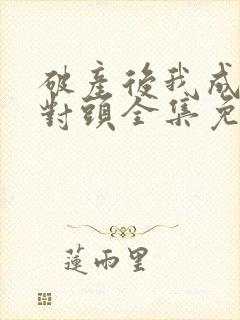 破產後我成
對頭全集免
蓮雨里